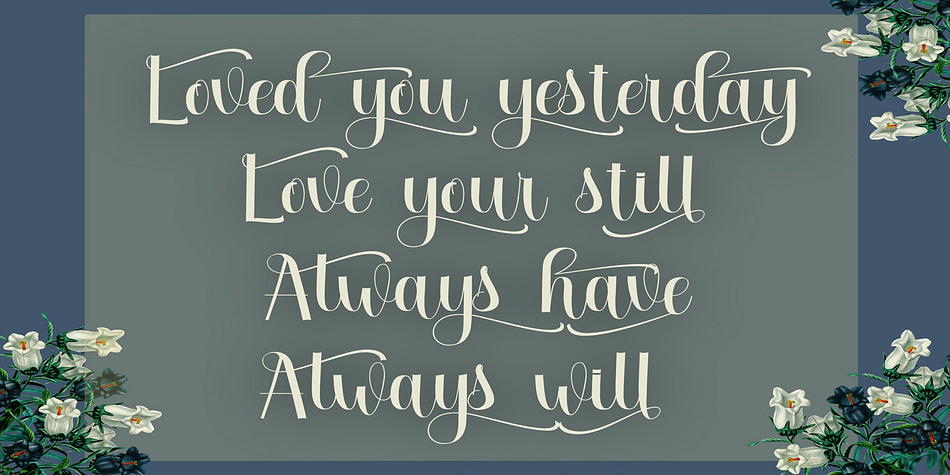 Loved you yesterday
Love your still
Always have
Always will